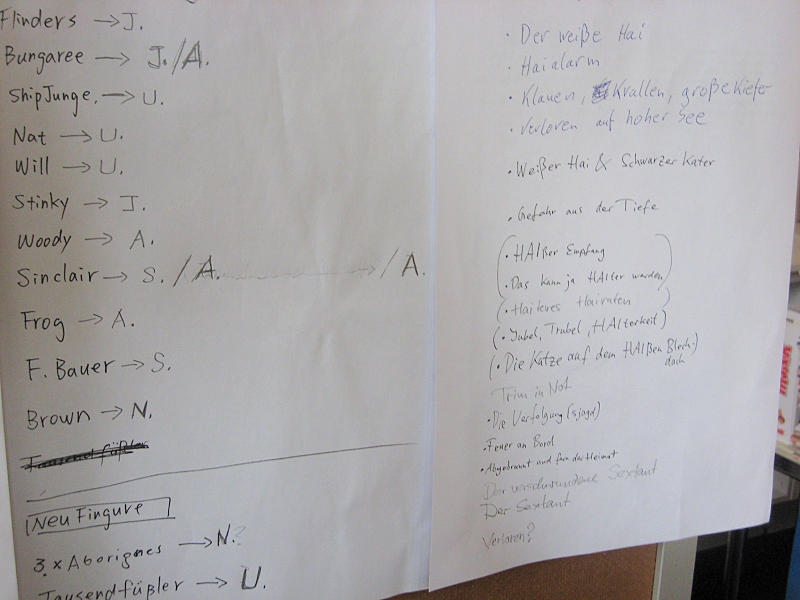 Flinders → J.
Bungaree → J./A.
Shipjunge. → U.
Nat → U.
Will → U.
Stinky → J.
Woody → A.
Sinclair → S. /A. → /A.
Frog → A.
F. Bauer → S.
Brown → N.
Tausendfüßler
Neu Fingure
3 x Aborignes → N.?
Tausendfüßler → U.
• Der weiße Hai
• Haialarm
• Klauen, Krallen, große Kiefer
• Verloren auf hoher See
• Weißer Hai & Schwarzer Kater
• Gefahr aus der Tiefe
(• HAIßer Empfang
• Das kann ja HAIter werden
• Haiteres Hairaten)
(• Jubel, Trubel, HAIterkeit)
(• Die Katze auf dem HAIßen Blech-
dach)
Trim in Not
• Die Verfolgung (sjagd)
• Feuer an Bord
• Abgebrannt und fern der Heimat
Der verschwundene Sextant
Der Sextant
Verloren?